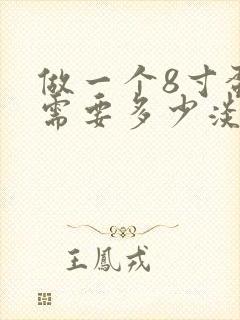 做一个8寸
需要多少淡
王鳳戎